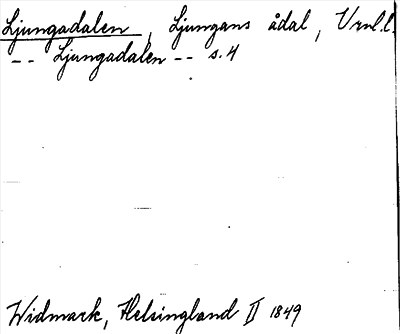 Ljungadalen, Ljungans ådal, Vnl.l.
-- Ljungadalen -- s. 4
Widmark, Helsingland II 1849